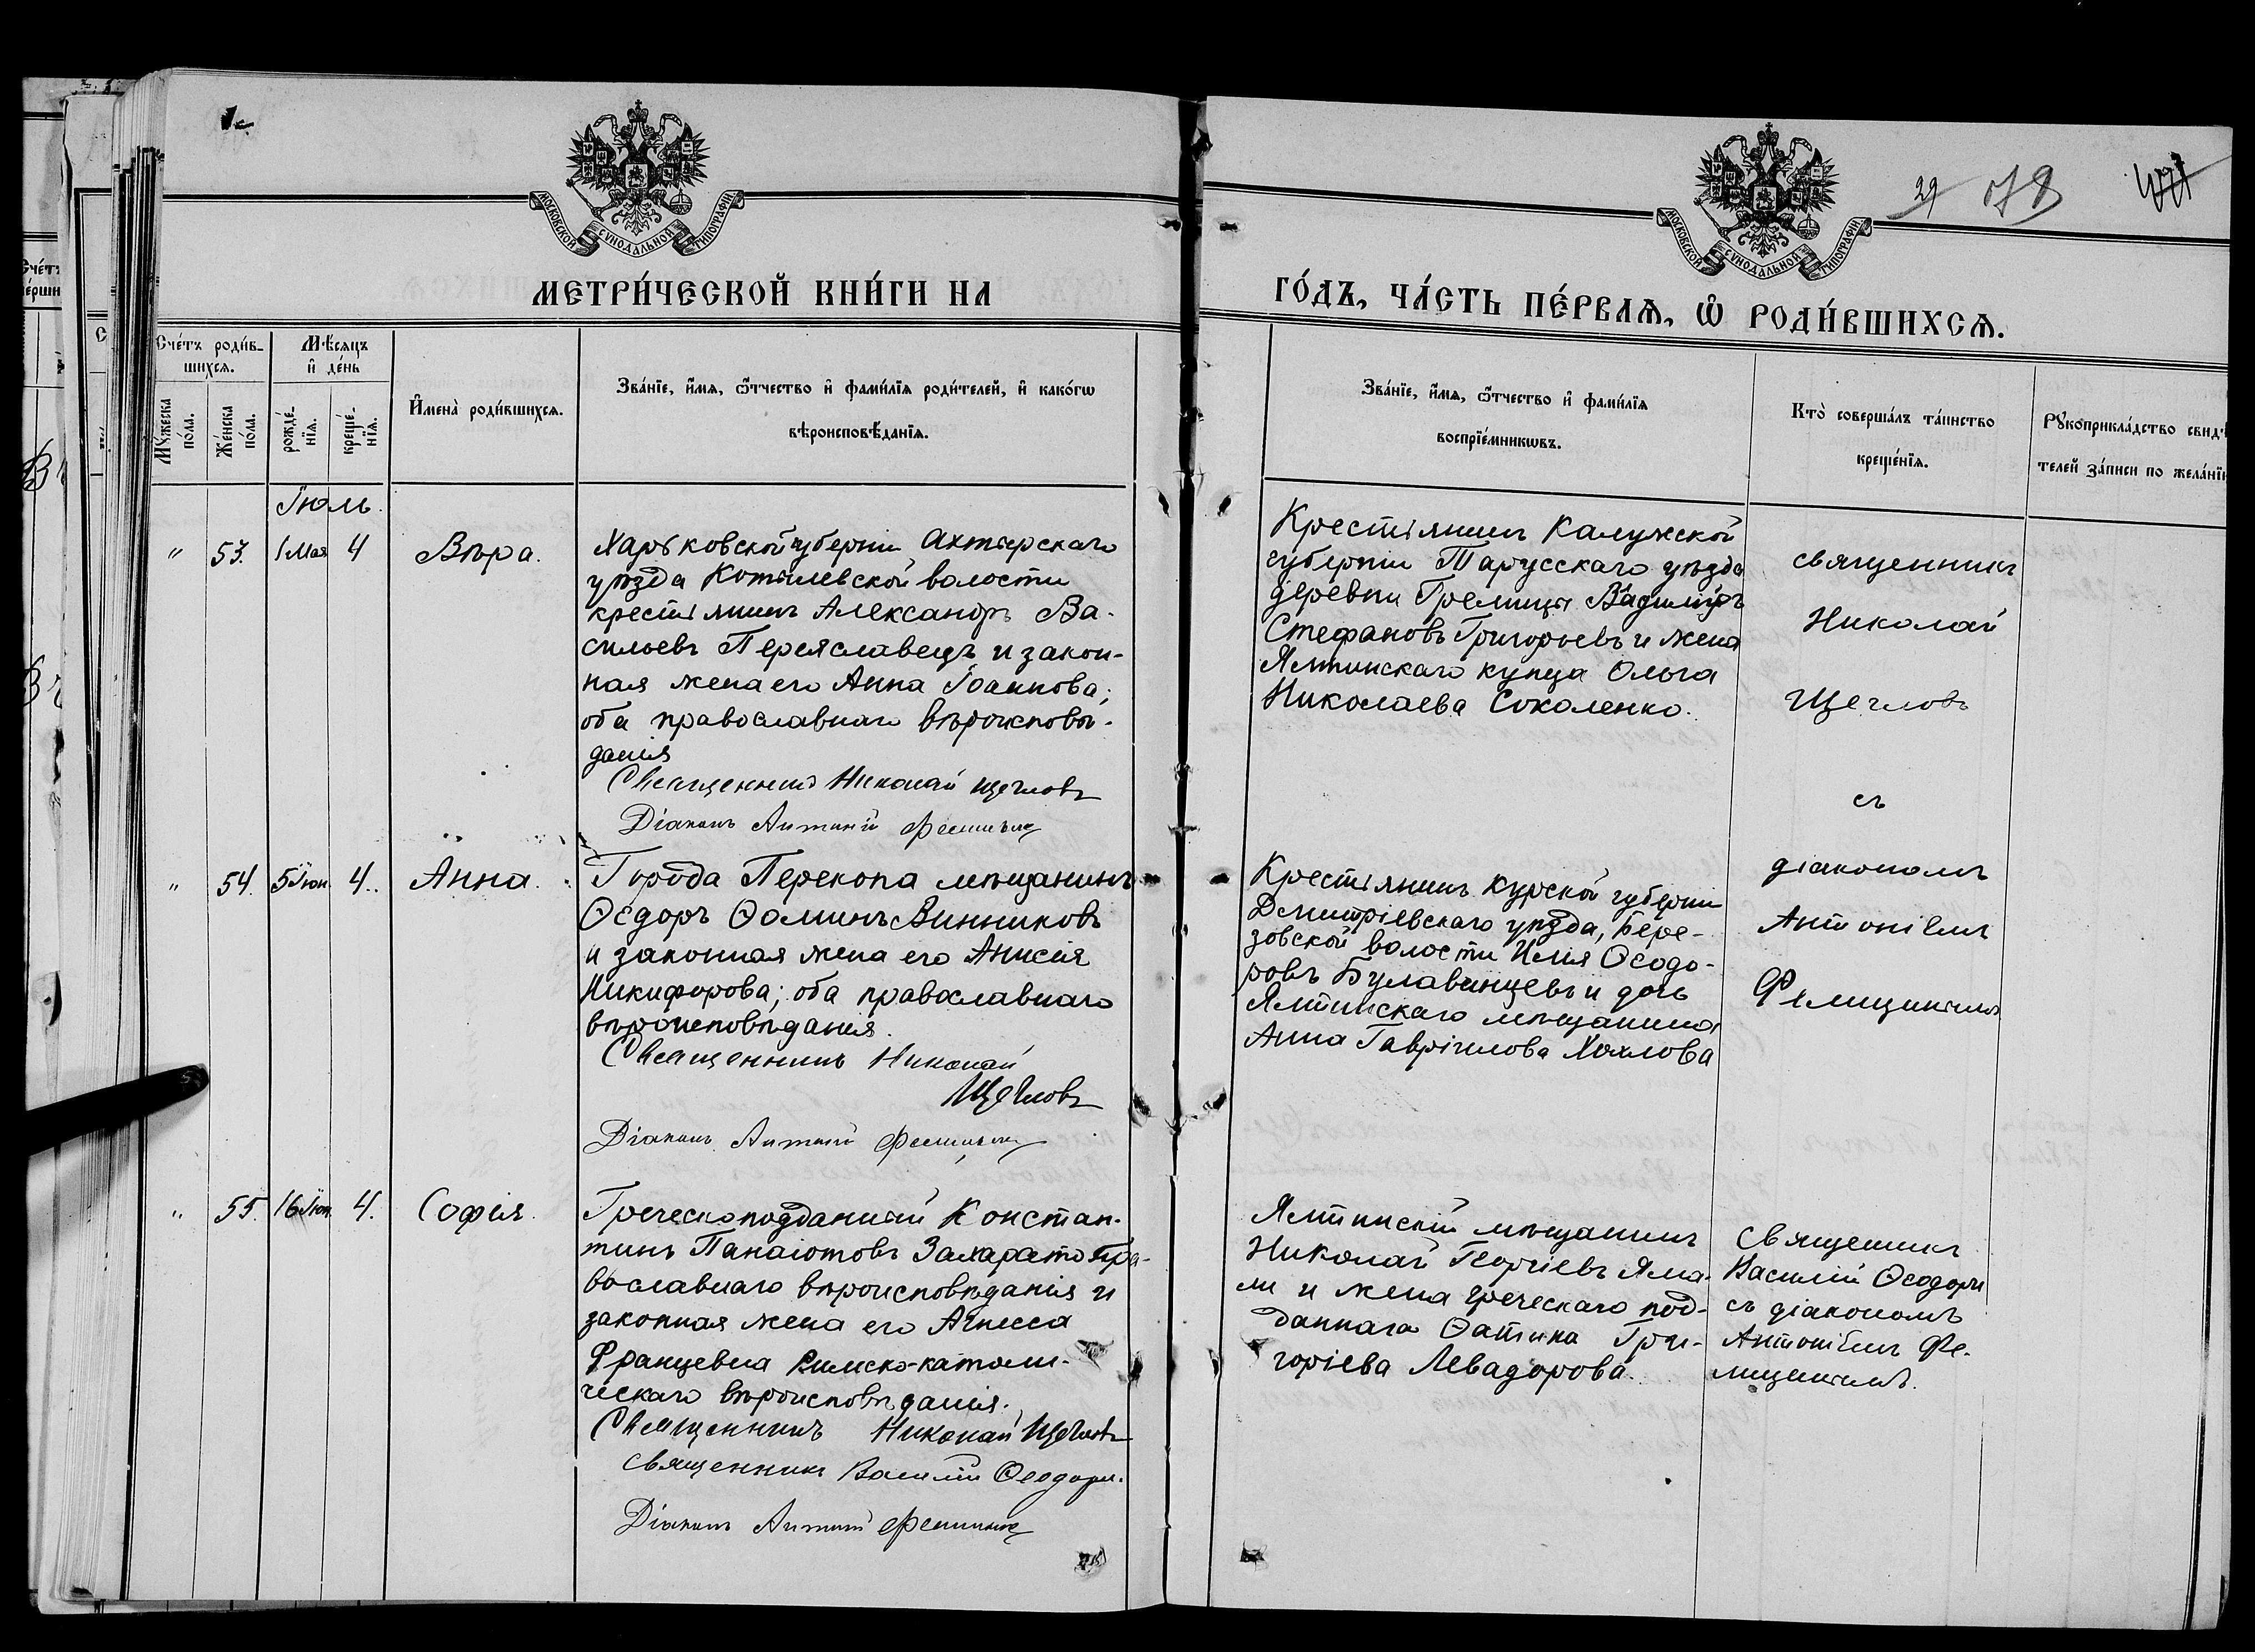 МОСКОВСКОЙ СѴНОДАЛЬНОЙ ТИПОГРАФІИ
МЕТРИ́ЧЕСКОЙ КНИ́ГИ НА
Сче́тъ роди́в-
шихсѧ.
Мꙋ́жеска
по́ла.
Же́нска
по́ла.
Мѣ́сѧцъ
и҆ де́нь
рожде́-
нїѧ.
креще́-
нїѧ.
И҆мена̀ роди́вшихсѧ.
Зва́нїе, и҆́мѧ, ѻ҆́тчество и҆ фами́лїѧ роди́телей, и҆ како́гѡ
вѣроисповѣ́данїѧ.
Іюль.
" 53. 1 Мая 4 Вѣра.
Харьковской губерніи Ахтырскаго
уѣзда Котелевской волости
крестьянинъ Александръ Ва-
сильевъ Переяславецъ и закон-
ная жена его Анна Іоаннова;
оба православнаго вѣроисповѣ-
данія
Священникъ Николай Щегловъ
Діаконъ Антоній
" 54. 5 Іюн. 4. Анна.
Города Перекопа мѣщанинъ
Ѳедоръ Ѳоминъ Винниковъ
и законная жена его Анисія
Никифорова; оба православнаго
вѣроисповѣданія.
Священникъ Николай
Щегловъ
Діаконъ Антоній
" 55. 16 Іюн. 4. Софія.
Греческоподданный Констан-
тинъ Панаіотовъ Захарато Пра-
вославнаго вѣроисповѣданія и
законная жена его Агнесса
Францевна Римско-католи-
ческаго вѣроисповѣданія.
Священникъ Николай Щегловъ
Священникъ Василій Ѳеодори.
Діаконъ Антоній
МОСКОВСКОЙ СѴНОДАЛЬНОЙ ТИПОГРАФІИ
29 178
ГО́ДЪ, ЧА́СТЬ ПЕ́РВАѦ, Ѽ РОДИ́ВШИХСѦ.
Зва́нїе, и҆́мѧ, ѻ҆́тчество и҆ фами́лїѧ
воспрїе́мникѡвъ.
Кто̀ соверша́лъ та́инство
креще́нїѧ.
Рꙋкоприкла́дство свидѣ́
телей за́писи по жела́нїю
Крестьянинъ Калужской
губерніи Тарусскаго уѣзда
деревни
Стефановъ Григорьевъ и жена
Ялтинскаго купца Ольга
Николаева Соколенко.
священникъ
Николай
Щегловъ
съ
діакономъ
Антоніемъ
Крестьянинъ Курской губерніи
Дмитріевскаго уѣзда, Бере-
зовской волости Илія Ѳеодо-
ровъ Булавинцевъ и дочь
Ялтинскаго мѣщанина
Анна Гавріилова Хохлова
Ялтинскій мѣщанинъ
Николай Георгіевъ Яма-
ли и жена греческаго под-
даннаго Ѳатина Гри-
горіева Левадорова.
Священникъ
Василій Ѳеодори
съ діакономъ
Антоніемъ